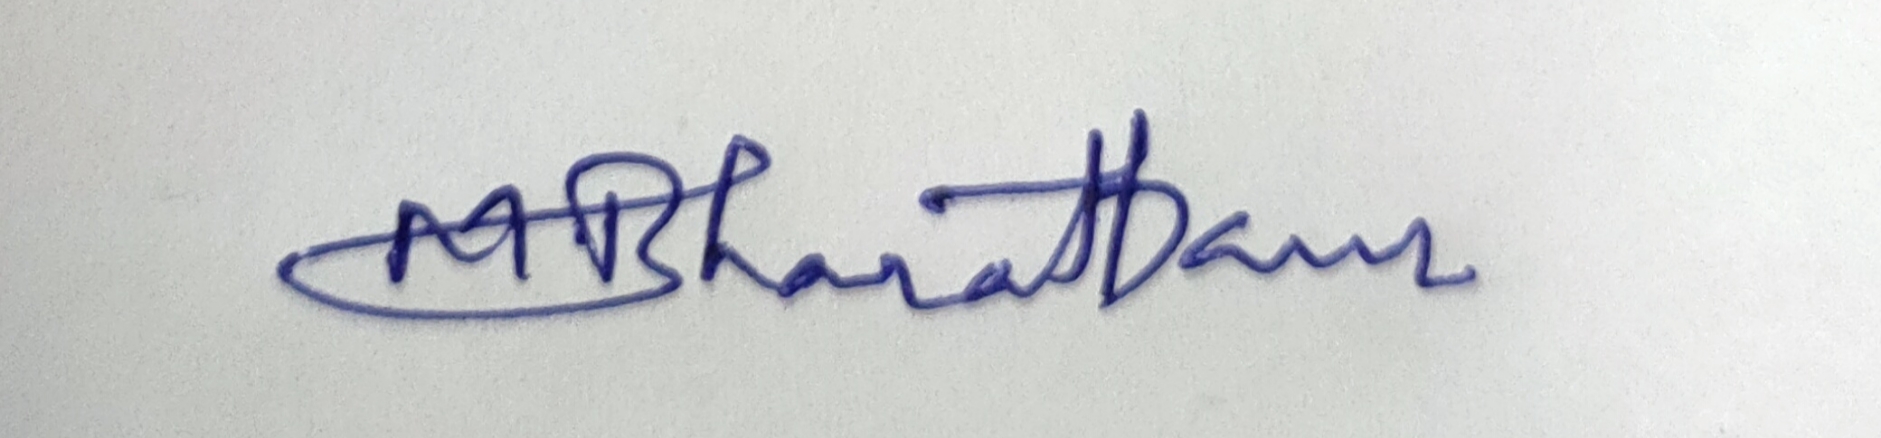 M Bharath